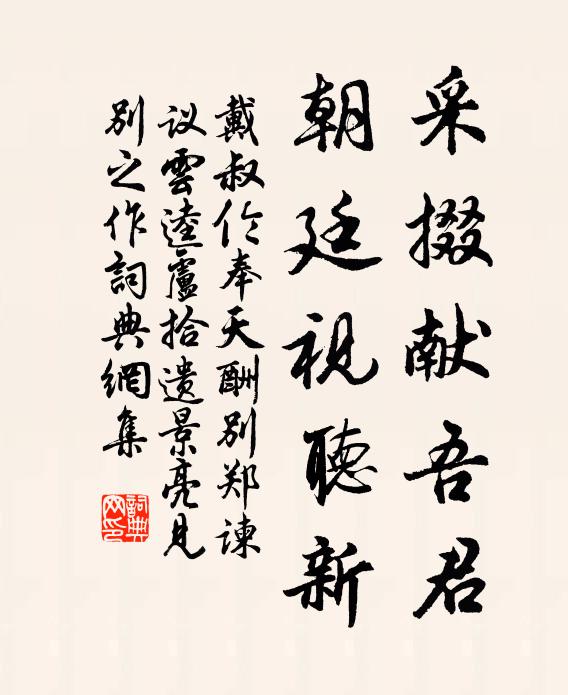 采掇献吾君
朝廷視聽新
戴叔伦奉天酬别郑谏
议雲逵盧拾遗景亮见
别之作詞典網集
詞典网印